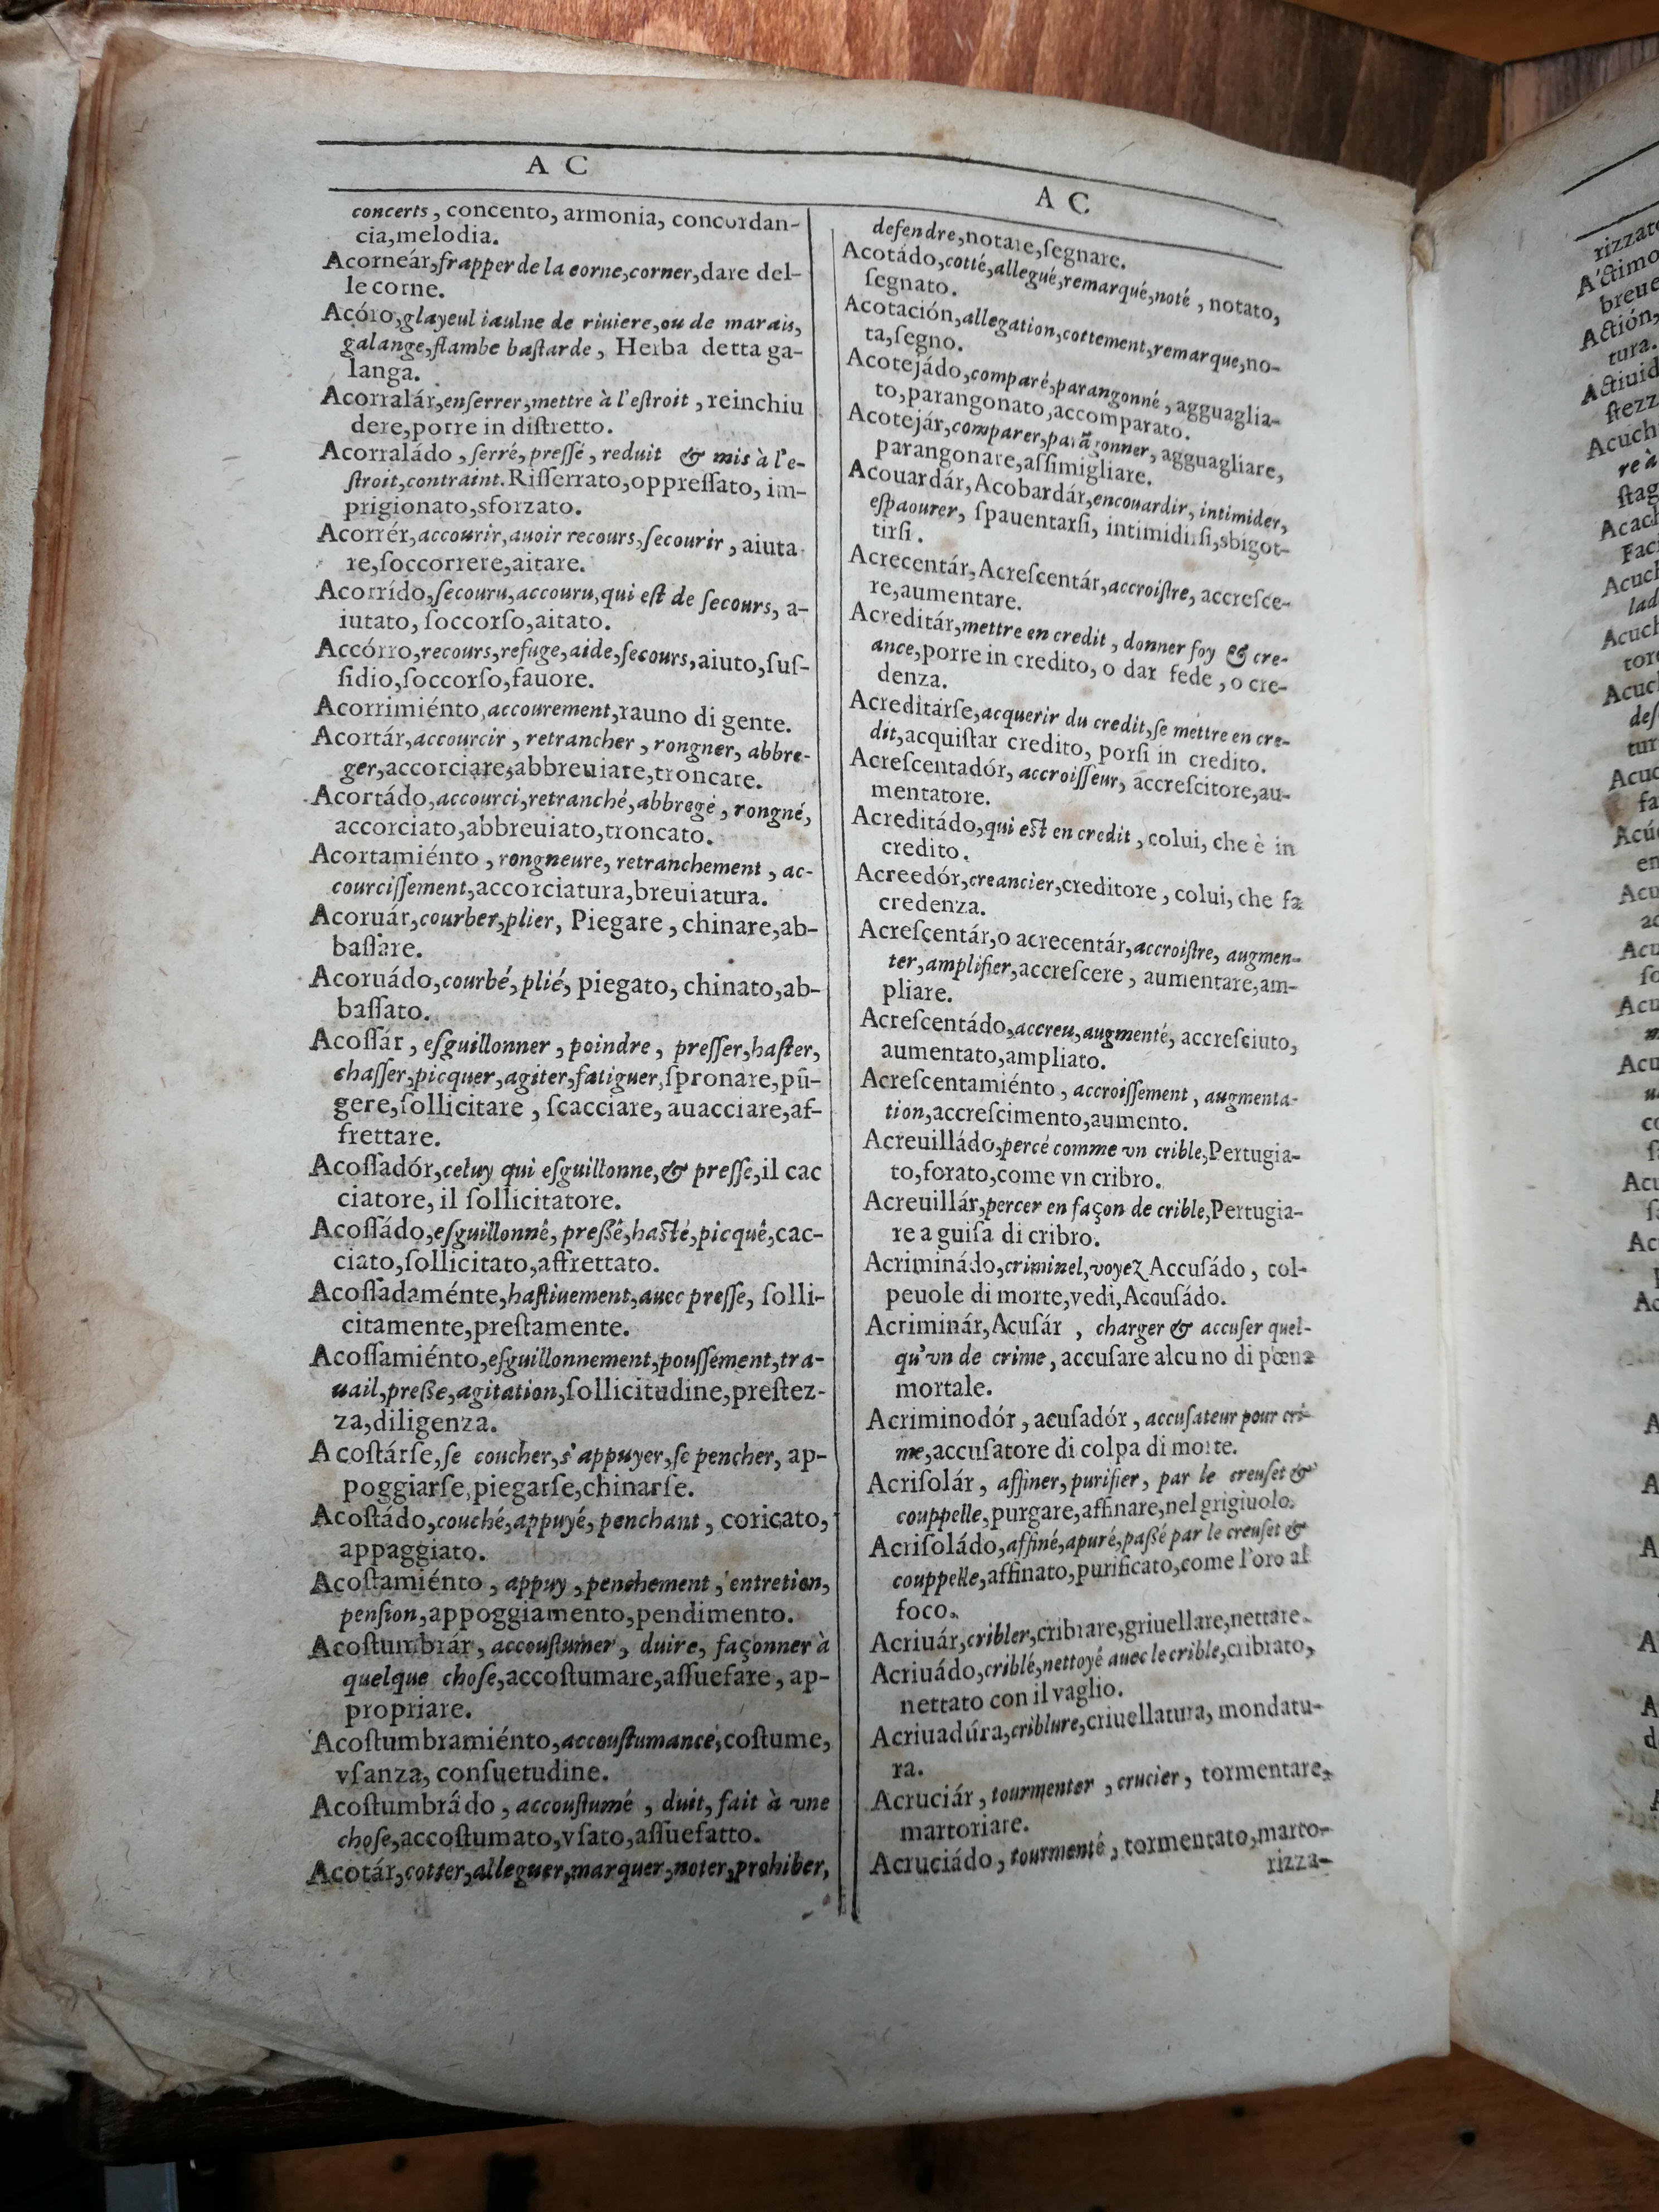 A C
concerts, concento, armonia, concordan-
cia,melodia.
Acorneár,frapper de la corne,corner,dare del-
le corne.
Acóro,glayeul iaulne de riuiere,ou de marais,
galange,flambe baſtarde, Herba detta ga-
langa.
Acorralár,enſerrer,mettre à l'eſtroit, reinchiu
dere,porre in diſtretto.
Acorraládo, ſerré, preſſé, reduit & mis à l'e-
ſtroit,contraint.Riſſerrato,oppreſſato, im-
prigionato,sforzato.
Acorrér,accourir,auoir recours,ſecourir, aiuta
re,ſoccorrere,aitare.
Acorrído,ſecouru,accouru,qui eſt de ſecours, a-
iutato, ſoccorſo,aitato.
Accórro,recours,refuge,aide,ſecours,aiuto,ſuſ-
ſidio,ſoccorſo,fauore.
Acorrimiénto,accourement,rauno di gente.
Acortár,accourcir, retrancher, rongner, abbre-
ger,accorciare,abbreuiare,troncare.
Acortádo,accourci,retranché,abbregé, rongné,
accorciato,abbreuiato,troncato.
Acortamiénto, rongneure, retranchement, ac-
courciſſement,accorciatura,breuiatura.
Acoruár,courber,plier, Piegare, chinare,ab-
baſſare.
Acoruádo,courbé,plié, piegato, chinato,ab-
baſſato.
Acoſſár, eſguillonner, poindre, preſſer,haſter,
chaſſer,picquer,agiter,fatiguer,ſpronare,pũ-
gere,ſollicitare, ſcacciare, auacciare,af-
frettare.
Acoſſadór,celuy qui eſguillonne,& preſſe,il cac
ciatore, il ſollicitatore.
Acoſſádo,eſguillonnê, preßê,haſté,picquê,cac-
ciato,ſollicitato,affrettato.
Acoſſadaménte,haſtiuement,auec preſſe, ſolli-
citamente,preſtamente.
Acoſſamiénto,eſguillonnement,pouſſement,tra-
uail,preße,agitation,ſollicitudine,preſtez-
za,diligenza.
Acoſtárſe,se coucher,s'appuyer,ſe pencher, ap-
poggiarſe,piegarſe,chinarſe.
Acoſtádo,couché,appuyé, penchant, coricato,
appaggiato.
Acoſtamiénto, appuy, penchement, entretien,
penſion,appoggiamento,pendimento.
Acoſtumbrár, accouſtumer, duire, façonner à
quelque choſe,accoſtumare,aſſuefare, ap-
propriare.
Acoſtumbramiénto,accouſtumance,coſtume,
vſanza, conſuetudine.
Acoſtumbrádo, accouſtumé, duit, fait à vne
choſe,accoſtumato,vſato,aſſuefatto.
Acotár,cotter,alleguer,marquer,noter,prohiber,
A C
defendre,notare,ſegnare.
Acotádo,cotté,allegué,remarqué,noté, notato,
ſegnato.
Acotación,allegation,cottement,remarque,no-
ta,ſegno.
Acotejádo,comparé,parangonné, agguaglia-
to,parangonato,accomparato.
Acotejár,comparer,parãgonner, agguagliare,
parangonare,aſſimigliare.
Acouardár, Acobardár,encouardir, intimider,
eſpaourer, ſpauentarſi, intimidirſi,sbigot-
tirſi.
Acrecentár, Acreſcentár,accroiſtre, accreſce-
re,aumentare.
Acreditár,mettre en credit, donner foy & cre-
ance,porre in credito, o dar fede, o cre-
denza.
Acreditárſe,acquerir du credit,ſe mettre en cre-
dit,acquiſtar credito, porſi in credito.
Acreſcentadór, accroiſſeur, accreſcitore,au-
mentatore.
Acreditádo,qui eſt en credit, colui, che è in
credito.
Acreedór,creancier,creditore, colui, che fa
credenza.
Acreſcentár,o acrecentár,accroiſtre, augmen-
ter,amplifier,accreſcere, aumentare,am-
pliare.
Acreſcentádo,accreu,augmenté, accreſciuto,
aumentato,ampliato.
Acreſcentamiénto, accroiſſement, augmenta-
tion,accreſcimento,aumento.
Acreuilládo,percé comme vn crible,Pertugia-
to,forato,come vn cribro.
Acreuillár,percer en façon de crible,Pertugia-
re a guiſa di cribro.
Acriminádo,criminel,voyez Accuſádo, col-
peuole di morte,vedi,Accuſádo.
Acriminár,Acuſár, charger & accuſer quel-
qu'vn de crime, accuſare alcuno di pœna
mortale.
Acriminodór, acuſadór, accuſateur pour cri-
me,accuſatore di colpa di morte.
Acriſolár, affiner, purifier, par le creuſet &
couppelle,purgare,affinare,nel grigiuolo.
Acriſoládo,affiné,apuré,paßé par le creuſet &
couppelle,affinato,purificato,come l'oro al
foco.
Acriuár,cribler,cribrare,griuellare,nettare.
Acriuádo,criblé,nettoyé auec le crible,cribrato,
nettato con il vaglio.
Acriuadúra,criblure,criuellatura, mondatu-
ra.
Acruciár, tourmenter, crucier, tormentare,
martoriare.
Acruciádo, tourmenté, tormentato,marto-
rizza-
rizzato
A'ctimo
breue
Actión,
tura.
Actiuid
ſtezz
Acuch
re à
ſtag
Acach
Faci
Acuch
lad
Acuch